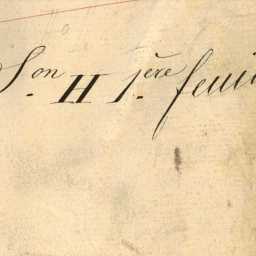 S.on H 1.ère feui